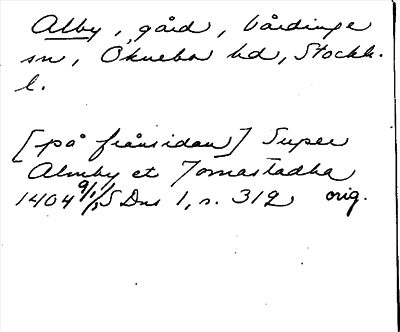 Alby, gård, Vårdinge
sn, Öknebo hd, Stockh.
l.
[på frånsidan] Super
Almby et Tomastadha
1404 9/1 SDns 1, s. 312 orig.